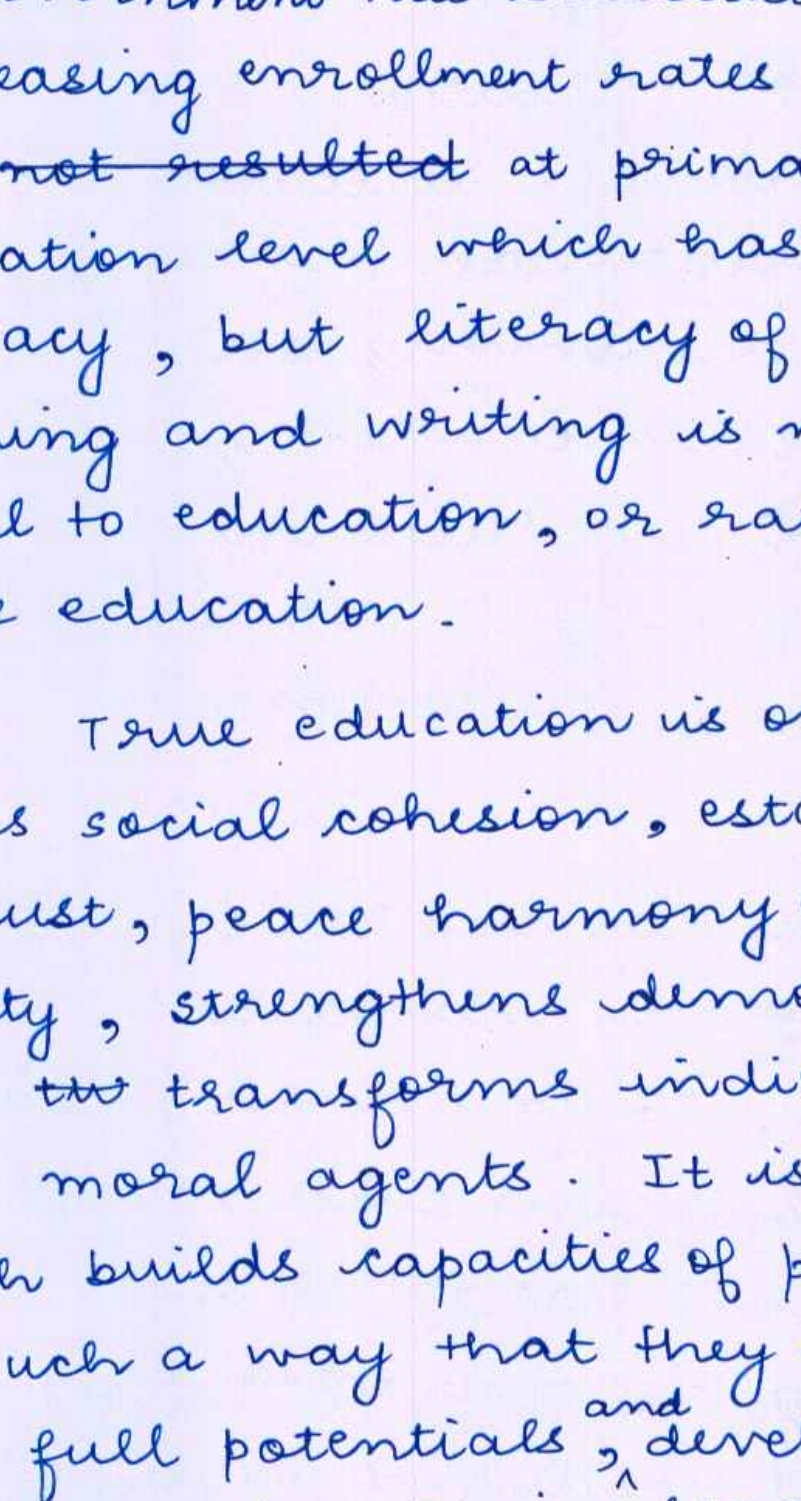 easing enrollment rates
not resulted at prima
ation level which has
acy, but literacy of
ing and writing is n
l to education, or ra
e education.
True education is o
s social cohesion, esta
ust, peace harmony
ty, strengthens demo
tw transforms indi
moral agents. It is
h builds capacities of p
uch a way that they
and
full potentials, deve